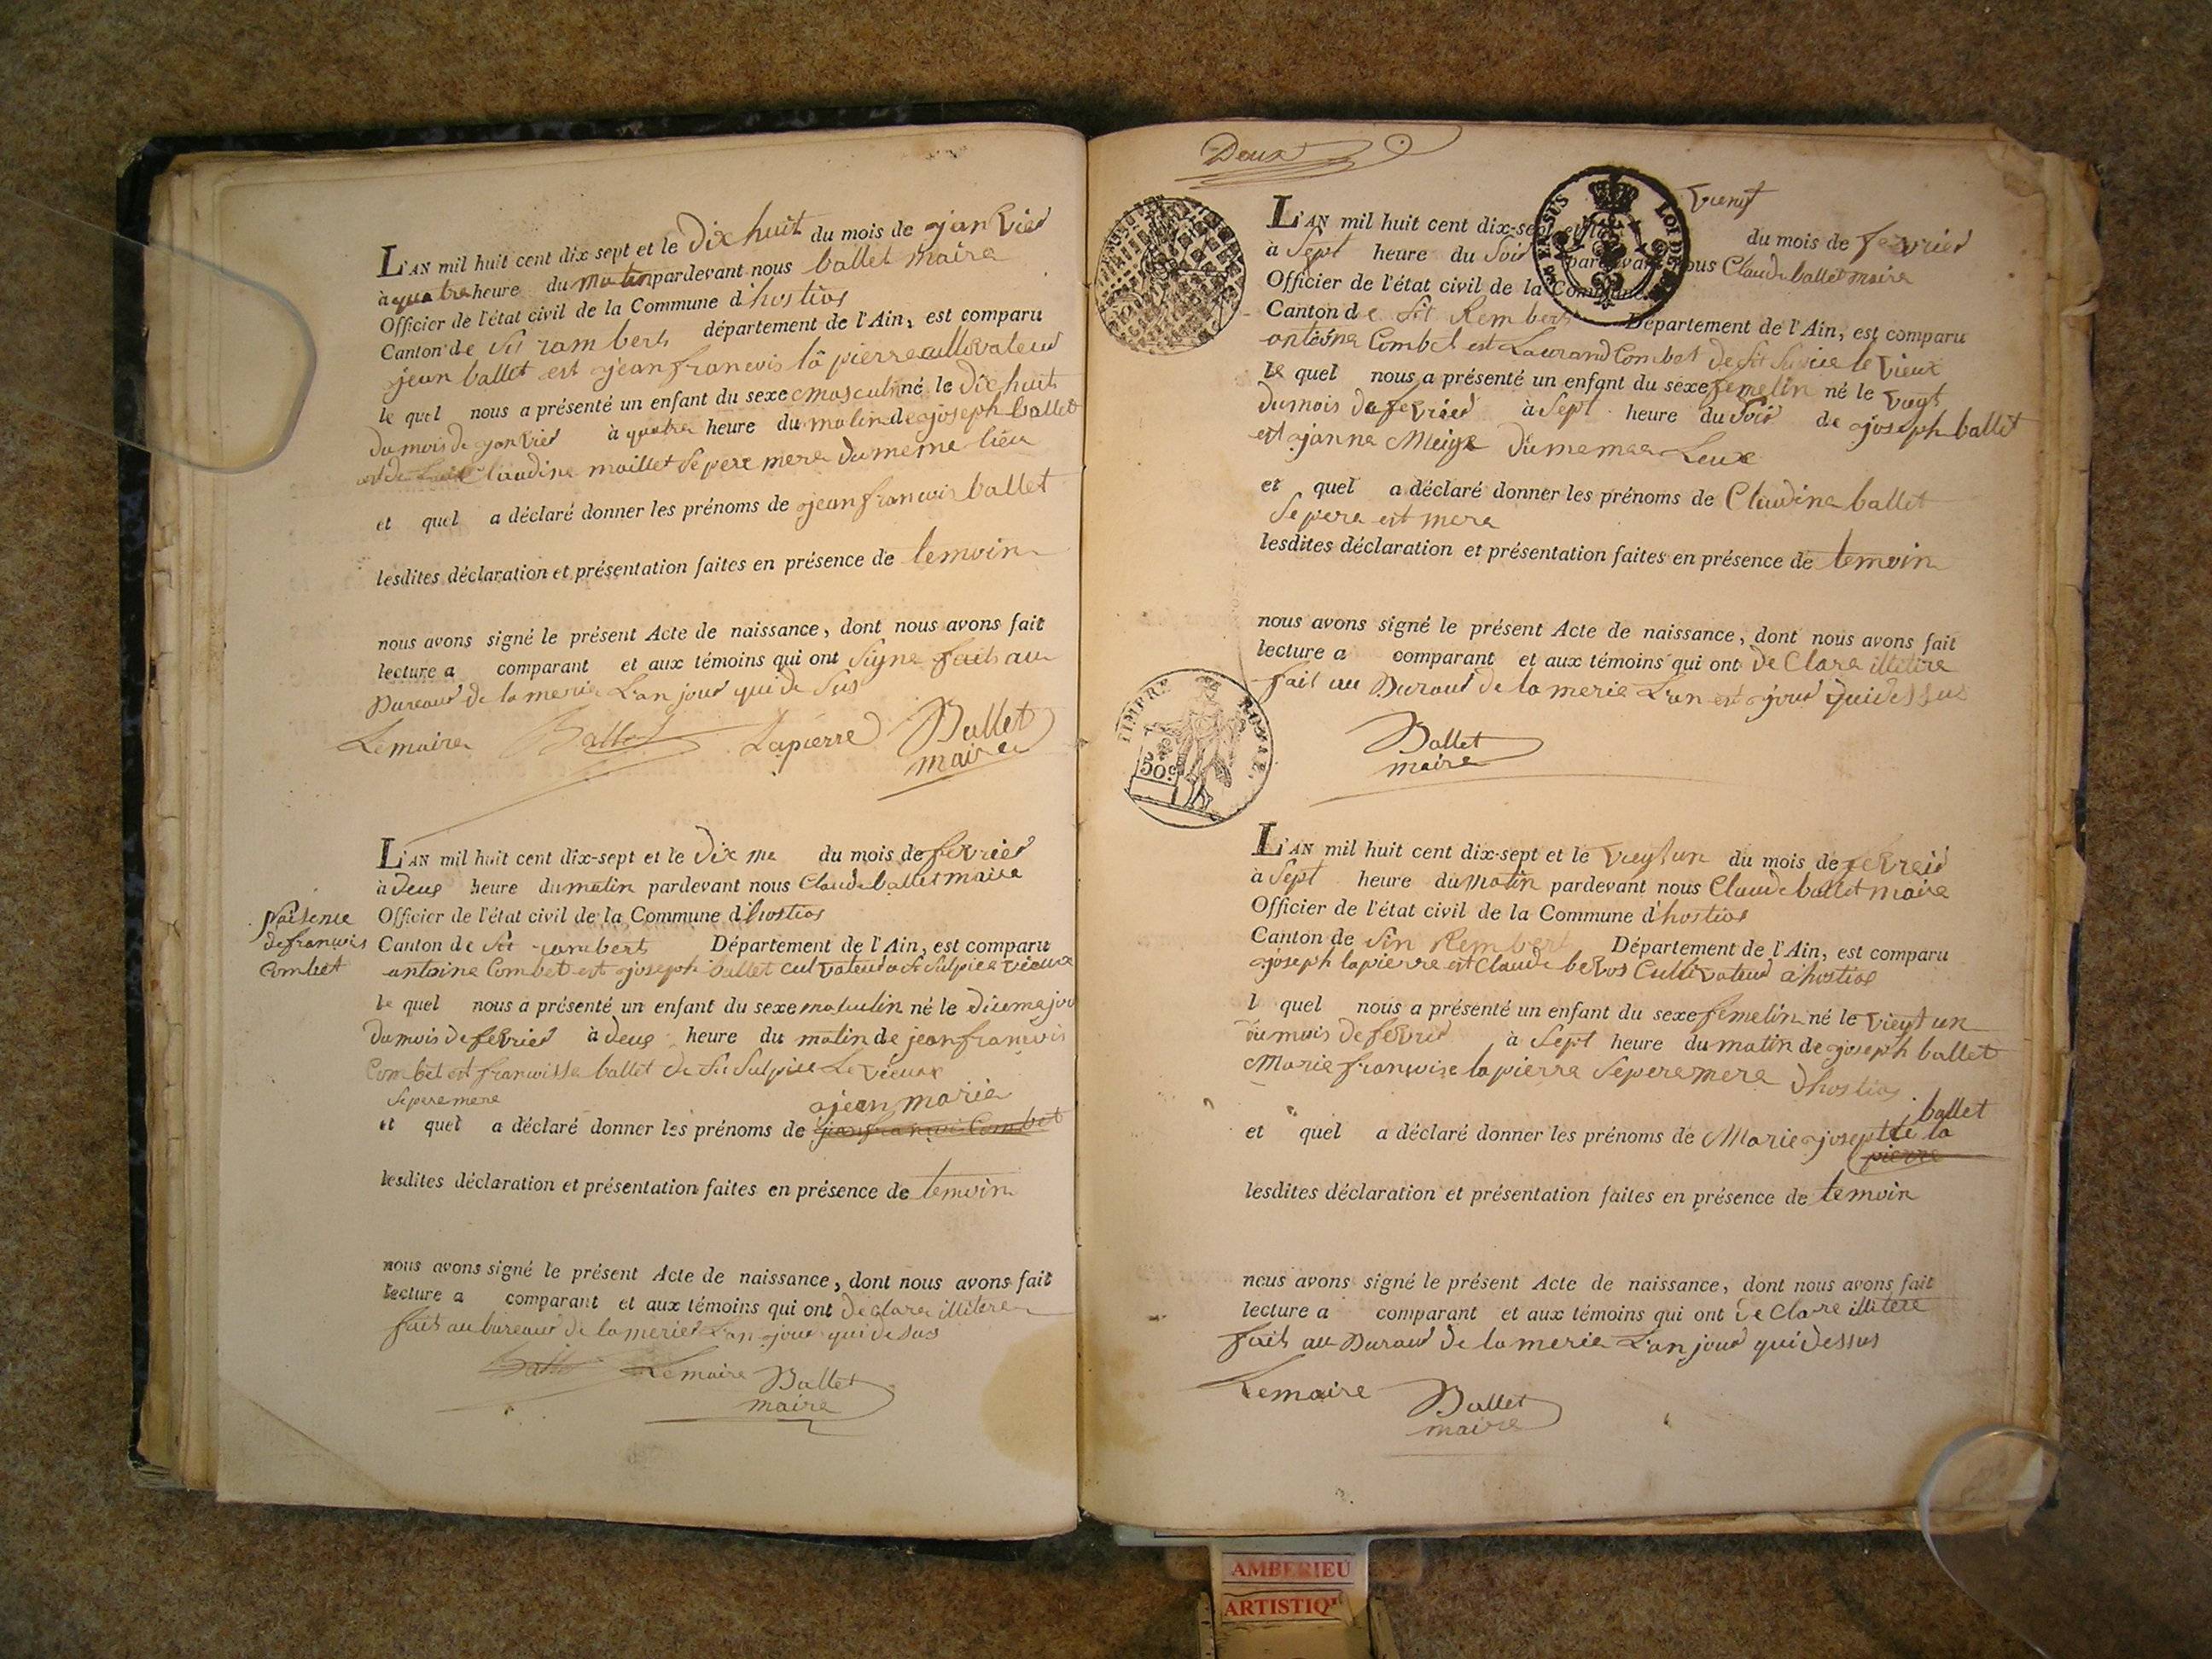 L'AN mil huit cent dix-sept et le Dix huit du mois de janvier
à quatre heure du matin pardevant nous ballet maire
Officier de l'état civil de la Commune d'hostias
Canton de St rambert département de l'Ain, est comparu
jean ballet est jean francois la pierre cultivateur
le quel nous a présenté un enfant du sexe masculin né le Dix huit
du mois de janvier à quatre heure du matin de joseph ballet
Claudine maillet se pere mere du meme lieu
et quel a déclaré donner les prénoms de jean francois ballet
lesdites déclaration et présentation faites en présence de temoin
nous avons signé le présent Acte de naissance, dont nous avons fait
lecture a comparant et aux témoins qui ont signe fait au
Bureaud de la merie L'an jour qui de sus
Lemaire Ballet Lapierre Ballet
maire
L'AN mil huit cent dix-sept et le dix me du mois de fevrier
à deux heure du matin pardevant nous Claude ballet maire
Officier de l'état civil de la Commune d'hostias
Canton de St rambert Département de l'Ain, est comparu
antoine Combet est joseph ballet cultivateur a St Sulpice vieux
le quel nous a présenté un enfant du sexe masculin né le diseme jour
du mois de fevrier à deux heure du matin de jean francois
Combet est francoisse ballet de St Sulpice Le vieux
se pere mere
jean marie
et quel a déclaré donner les prénoms de jean francois Combet
lesdites déclaration et présentation faites en présence de temoin
nous avons signé le présent Acte de naissance, dont nous avons fait
lecture a comparant et aux témoins qui ont declare illitere
fait au bureaud de la merie L'an jour qui de sus
Lemaire Ballet
maire
de francois
Combet
Deux
L'AN mil huit cent dix-sept et le vient
du mois de fevrier
à Sept heure du Soir pardevant nous Claude ballet maire
Officier de l'état civil de la Commune
Canton de St Rembert Département de l'Ain, est comparu
antoine Combet est Laurand Combet de St Sulpice le vieux
le quel nous a présenté un enfant du sexe femelin né le viegt
du mois de fevrier à Sept heure du Soir de joseph ballet
est janne Meige du memee Leux
et quel a déclaré donner les prénoms de Claudine ballet
se pere est mere
lesdites déclaration et présentation faites en présence de temoin
nous avons signé le présent Acte de naissance, dont nous avons fait
lecture a comparant et aux témoins qui ont de Clare illitire
fait au Buraud de la merie L'an est jour qui dessus
Ballet
maire
TIMBRE ROYAL
50c
LOI DE
L'AN mil huit cent dix-sept et le viegt un du mois de fevreir
à Sept heure du matin pardevant nous Claude ballet maire
Officier de l'état civil de la Commune d'hostias
Canton de Sin Rembert Département de l'Ain, est comparu
joseph lapierre est Claude beros Cultivateur a hostias
l quel nous a présenté un enfant du sexe femelin né le viegt un
du mois de fevrier à Sept heure du matin de joseph ballet
Marie francoise lapierre se pere mere d'hostias
ballet
et quel a déclaré donner les prénoms de Marie josepte la
pierre
lesdites déclaration et présentation faites en présence de temoin
nous avons signé le présent Acte de naissance, dont nous avons fait
lecture a comparant et aux témoins qui ont de Clare illitere
fait au Buraud de la merie L'an jour qui dessus
Lemaire Ballet
maire
AMBERIEU
ARTISTIQ